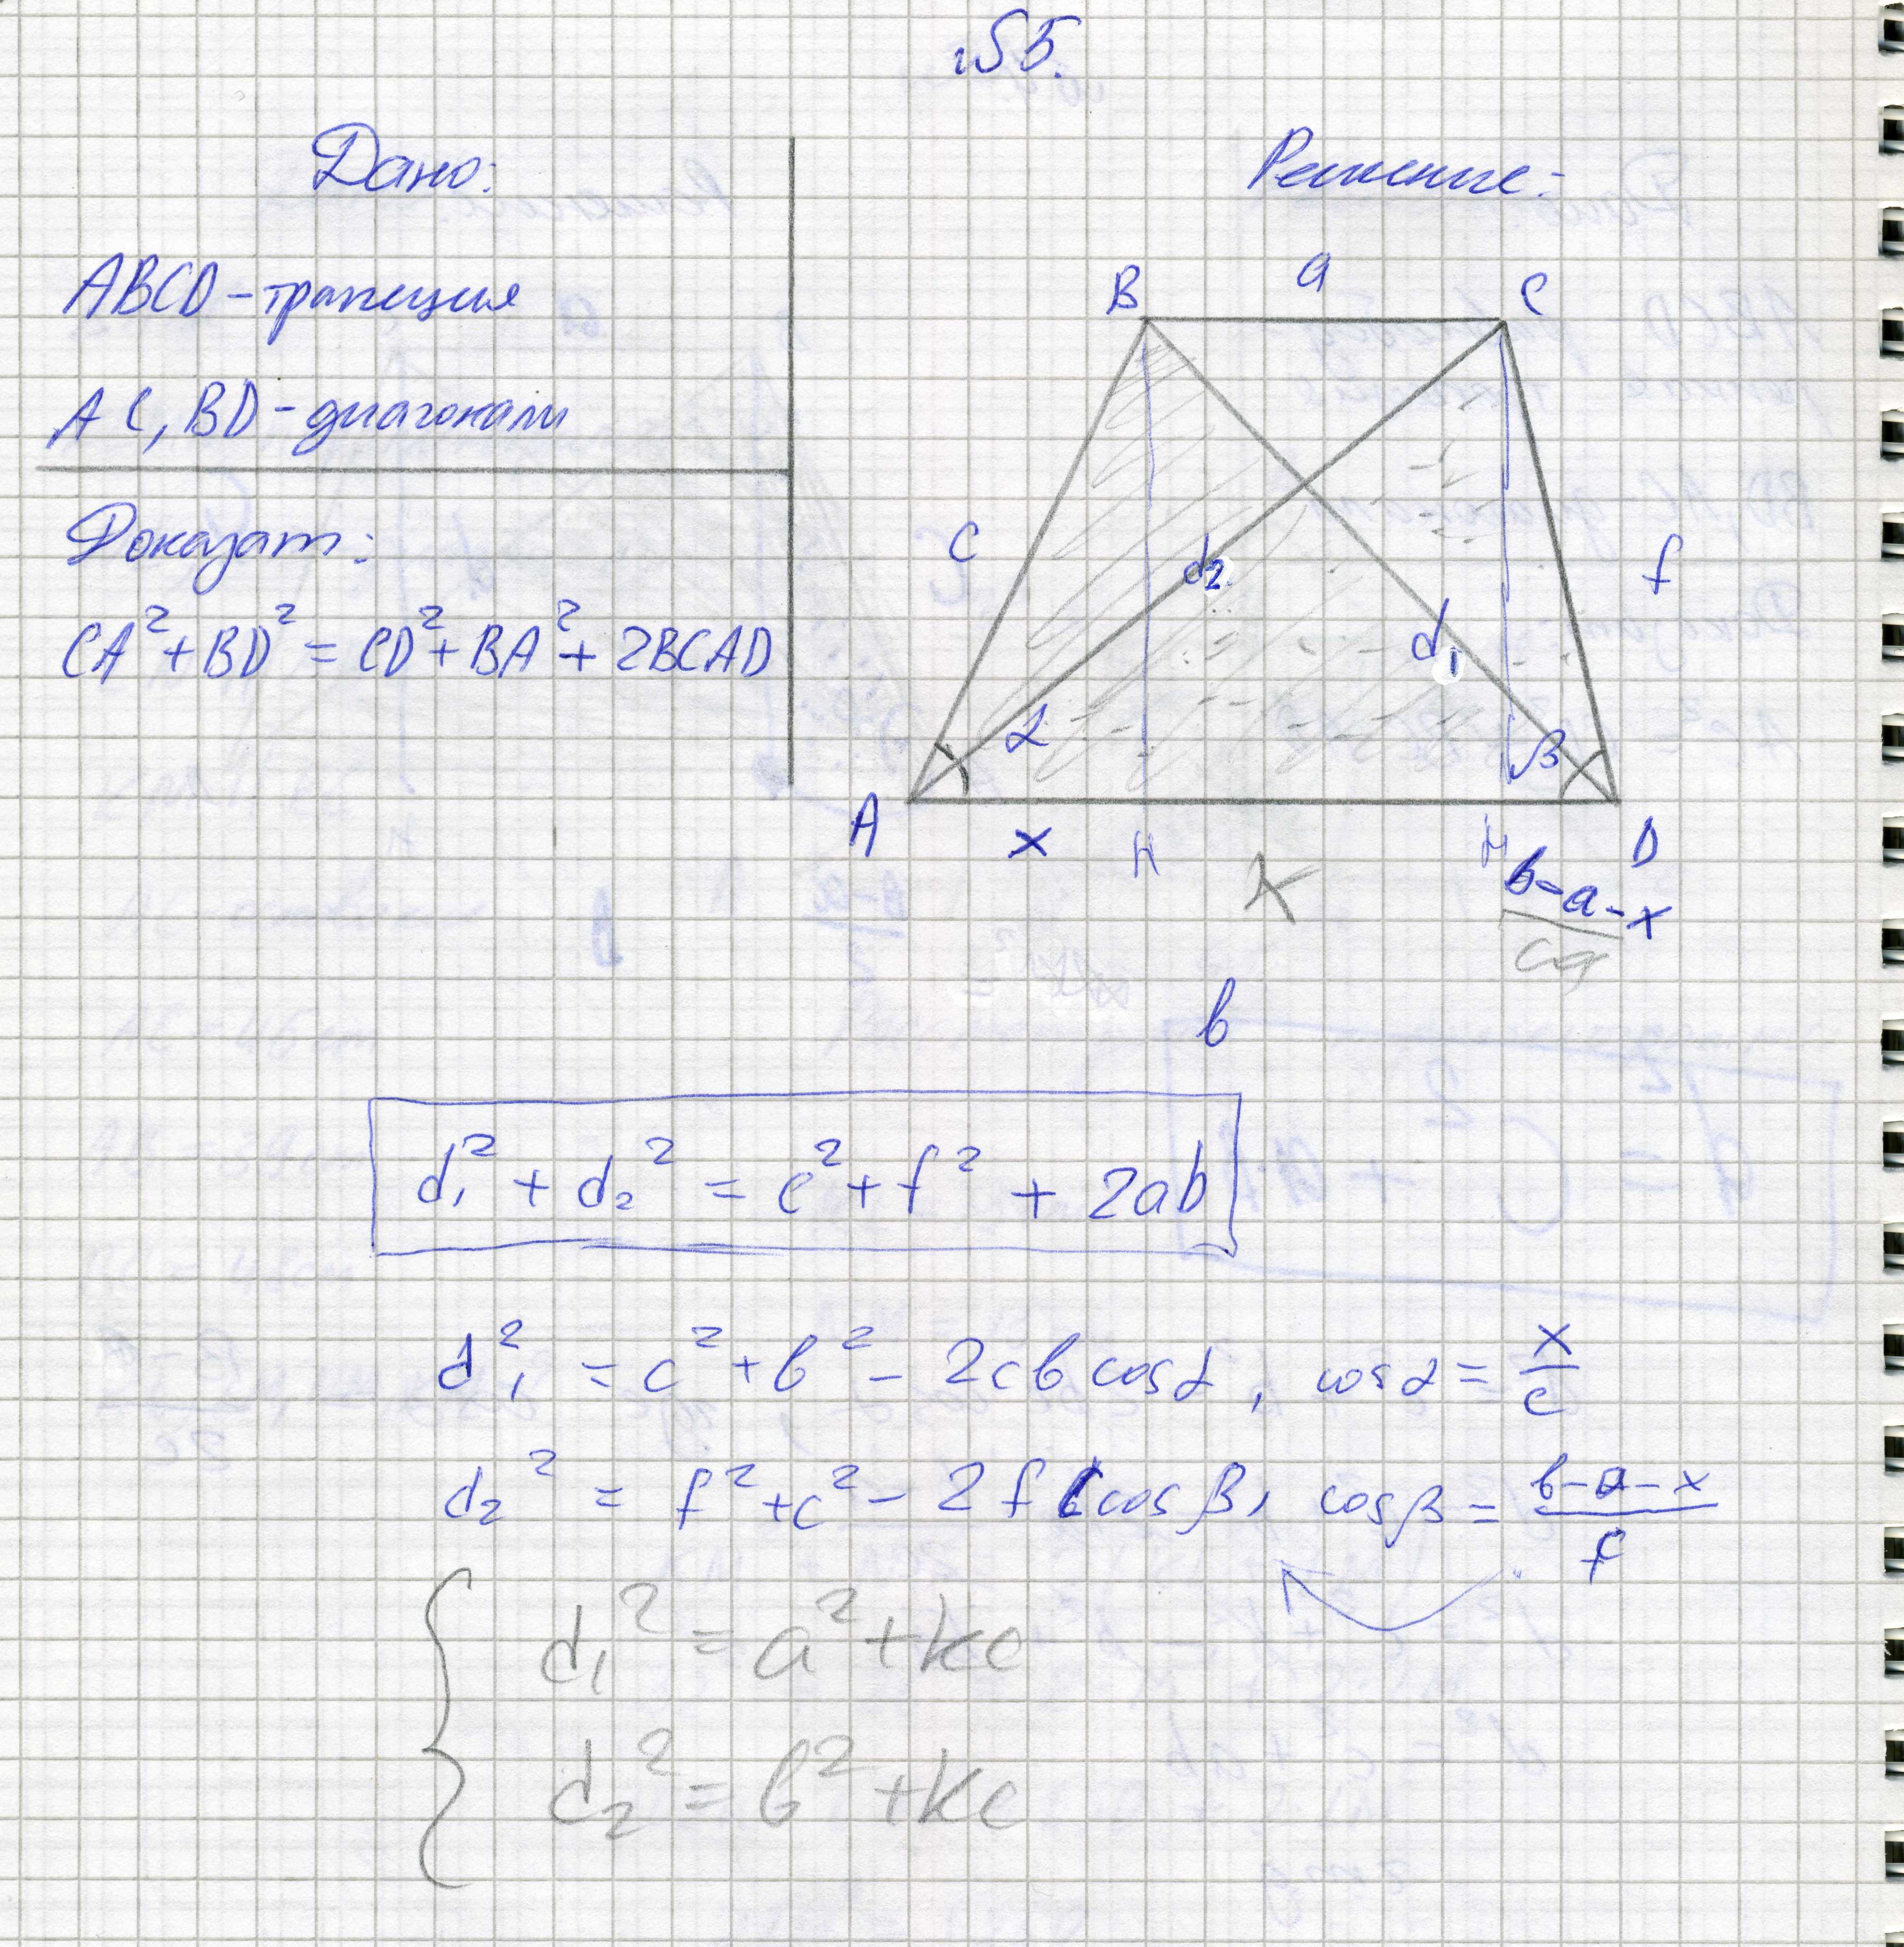 №5.
Дано:
ABCD - трапеция
AC, BD - диагонали
Доказат:
CA² + BD² = CD² + BA² + 2BCAD
Решение:
B a C
C f
d₂
d₁
α β
A x H K H D
b-a-x
ca
b
d₁² + d₂² = c² + f² + 2ab
d₁² = c² + b² - 2cb cosα, cosα = x/c
d₂² = f² + c² - 2f cosβ, cosβ = b-a-x/f
d₁² = a² + kc
d₂² = b² + kc